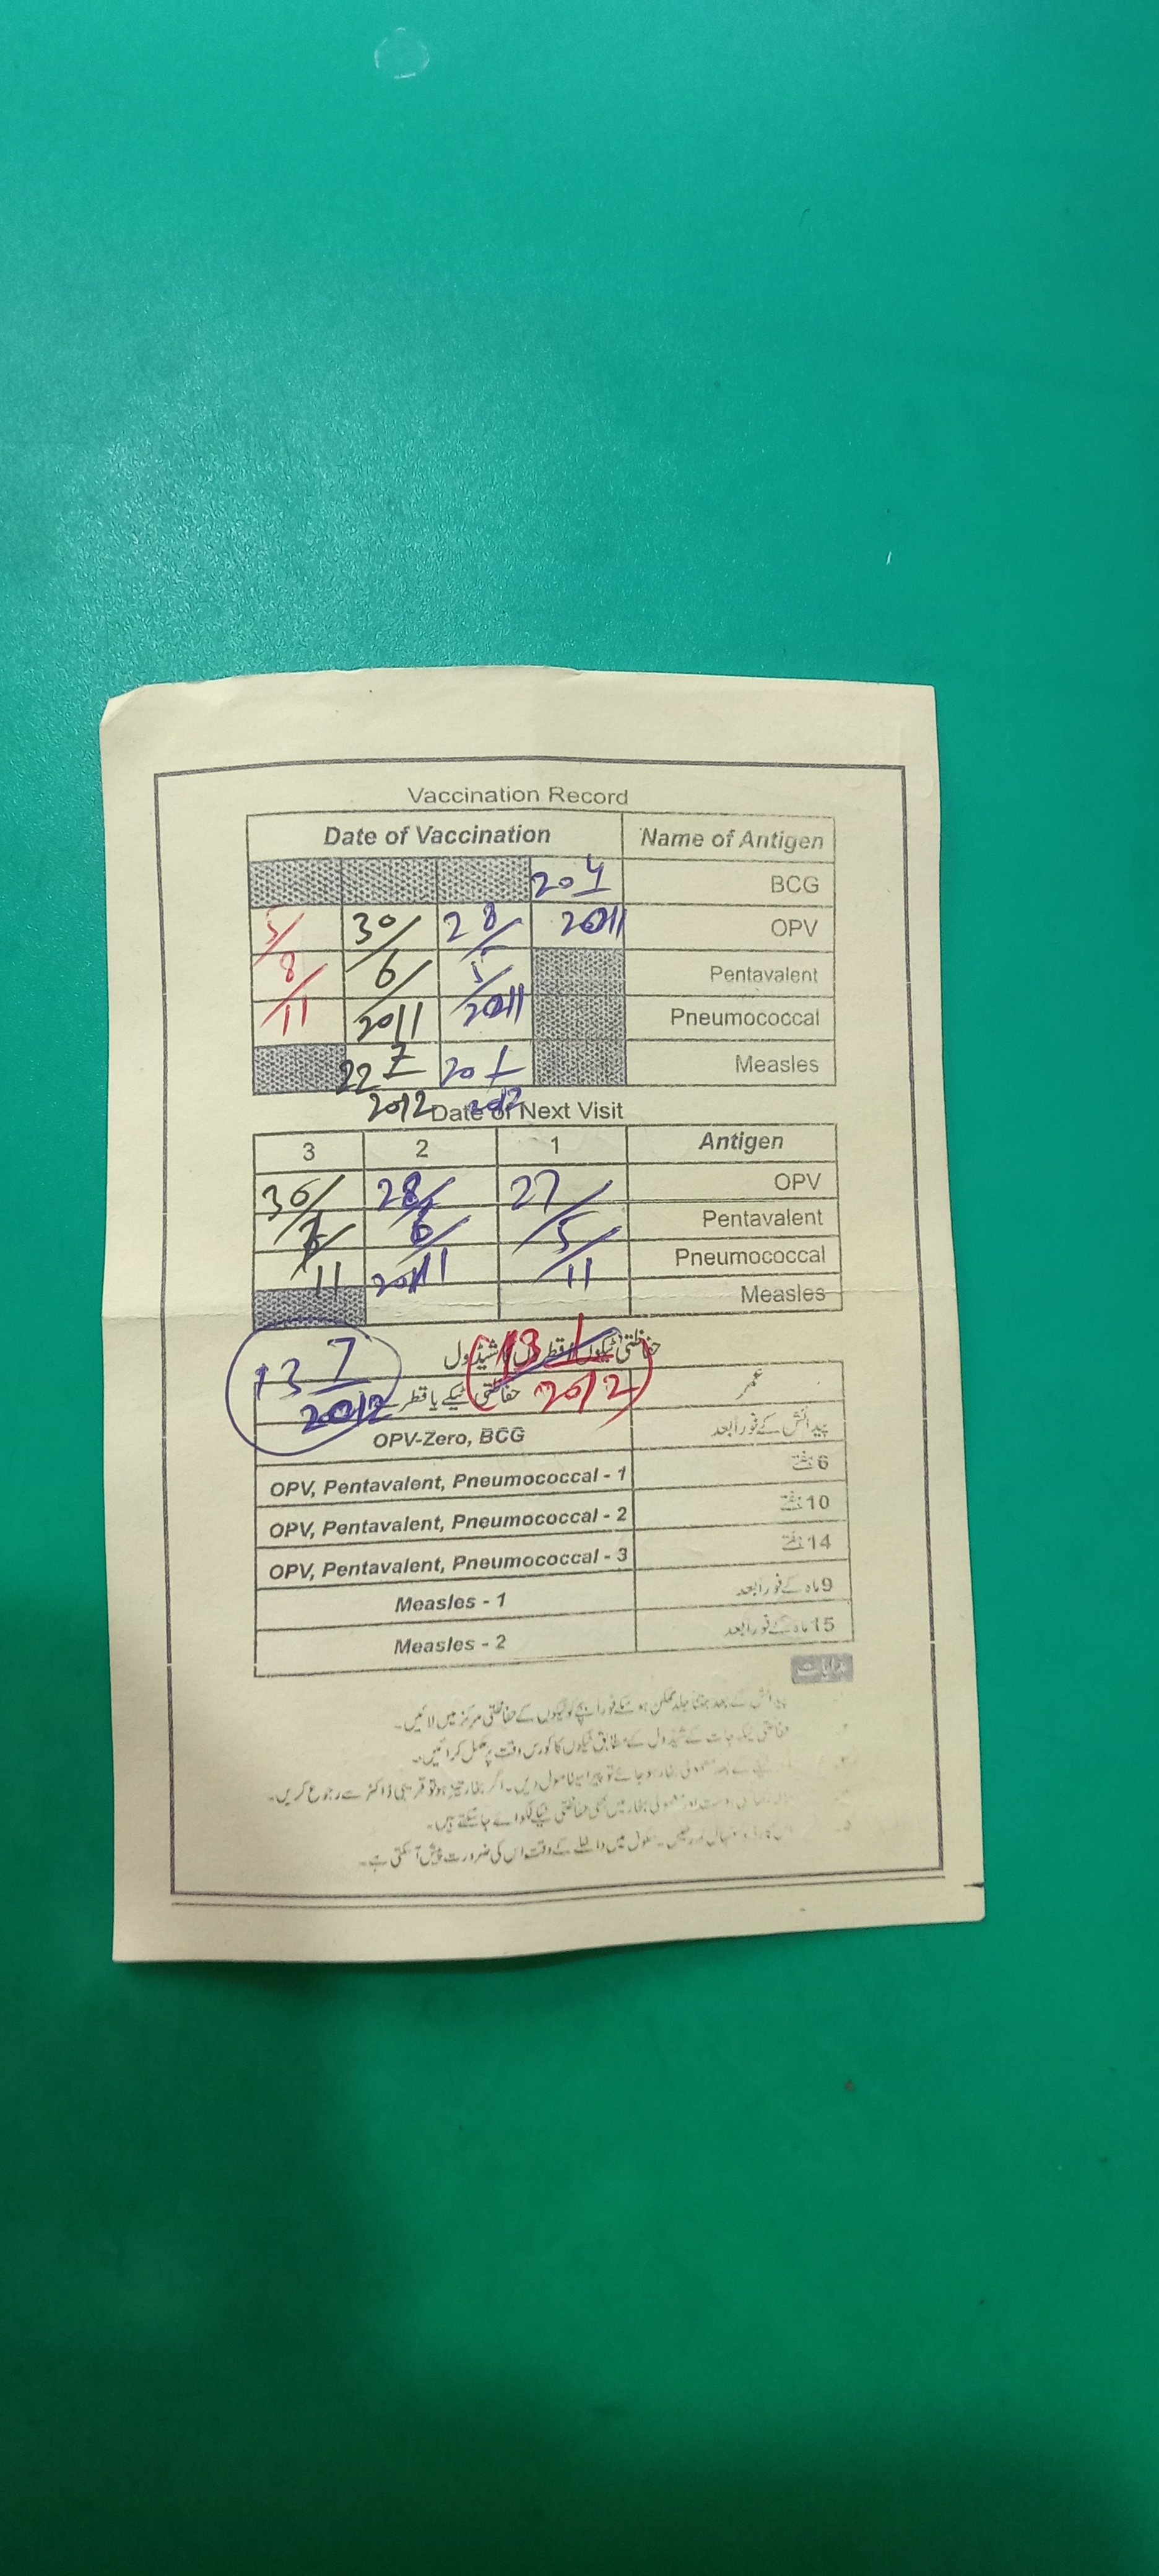 Vaccination Record
Date of Vaccination Name of Antigen
20 4 BCG
5/ 30/ 28/ 2011 OPV
8/ 6/ 5/ Pentavalent
11 2011 2011 Pneumococcal
22 7 20 1 Measles
2012 2012
Date of Next Visit
3 2 1 Antigen
30/ 28/ 27/ OPV
6/ 5/ Pentavalent
11 2011 11 Pneumococcal
Measles
13 7 13 1 حفاظتی ٹیکوں / قطروں کا شیڈول
2012 حفاظتی ٹیکے یا قطرے 2012 عمر
OPV-Zero, BCG پیدائش کے فوراً بعد
OPV, Pentavalent, Pneumococcal - 1 6 ہفتے
OPV, Pentavalent, Pneumococcal - 2 10 ہفتے
OPV, Pentavalent, Pneumococcal - 3 14 ہفتے
Measles - 1 9 ماہ کے فوراً بعد
Measles - 2 15 ماہ کے فوراً بعد
ہدایات
پیدائش کے بعد جتنا جلد ممکن ہو سکے فوراً بچے کو ٹیکوں کے حفاظتی مرکز میں لائیں۔
حفاظتی ٹیکہ جات کے شیڈول کے مطابق ٹیکوں کا کورس وقت پر مکمل کرائیں۔
ٹیکے کے بعد معمولی بخار ہو جائے تو پیراسیٹامول دیں۔ اگر بخار تیز ہو تو قریبی ڈاکٹر سے رجوع کریں۔
معمولی بخار میں بھی حفاظتی ٹیکے لگوائے جا سکتے ہیں۔
سکول میں داخلے کے وقت اس کی ضرورت پیش آ سکتی ہے۔